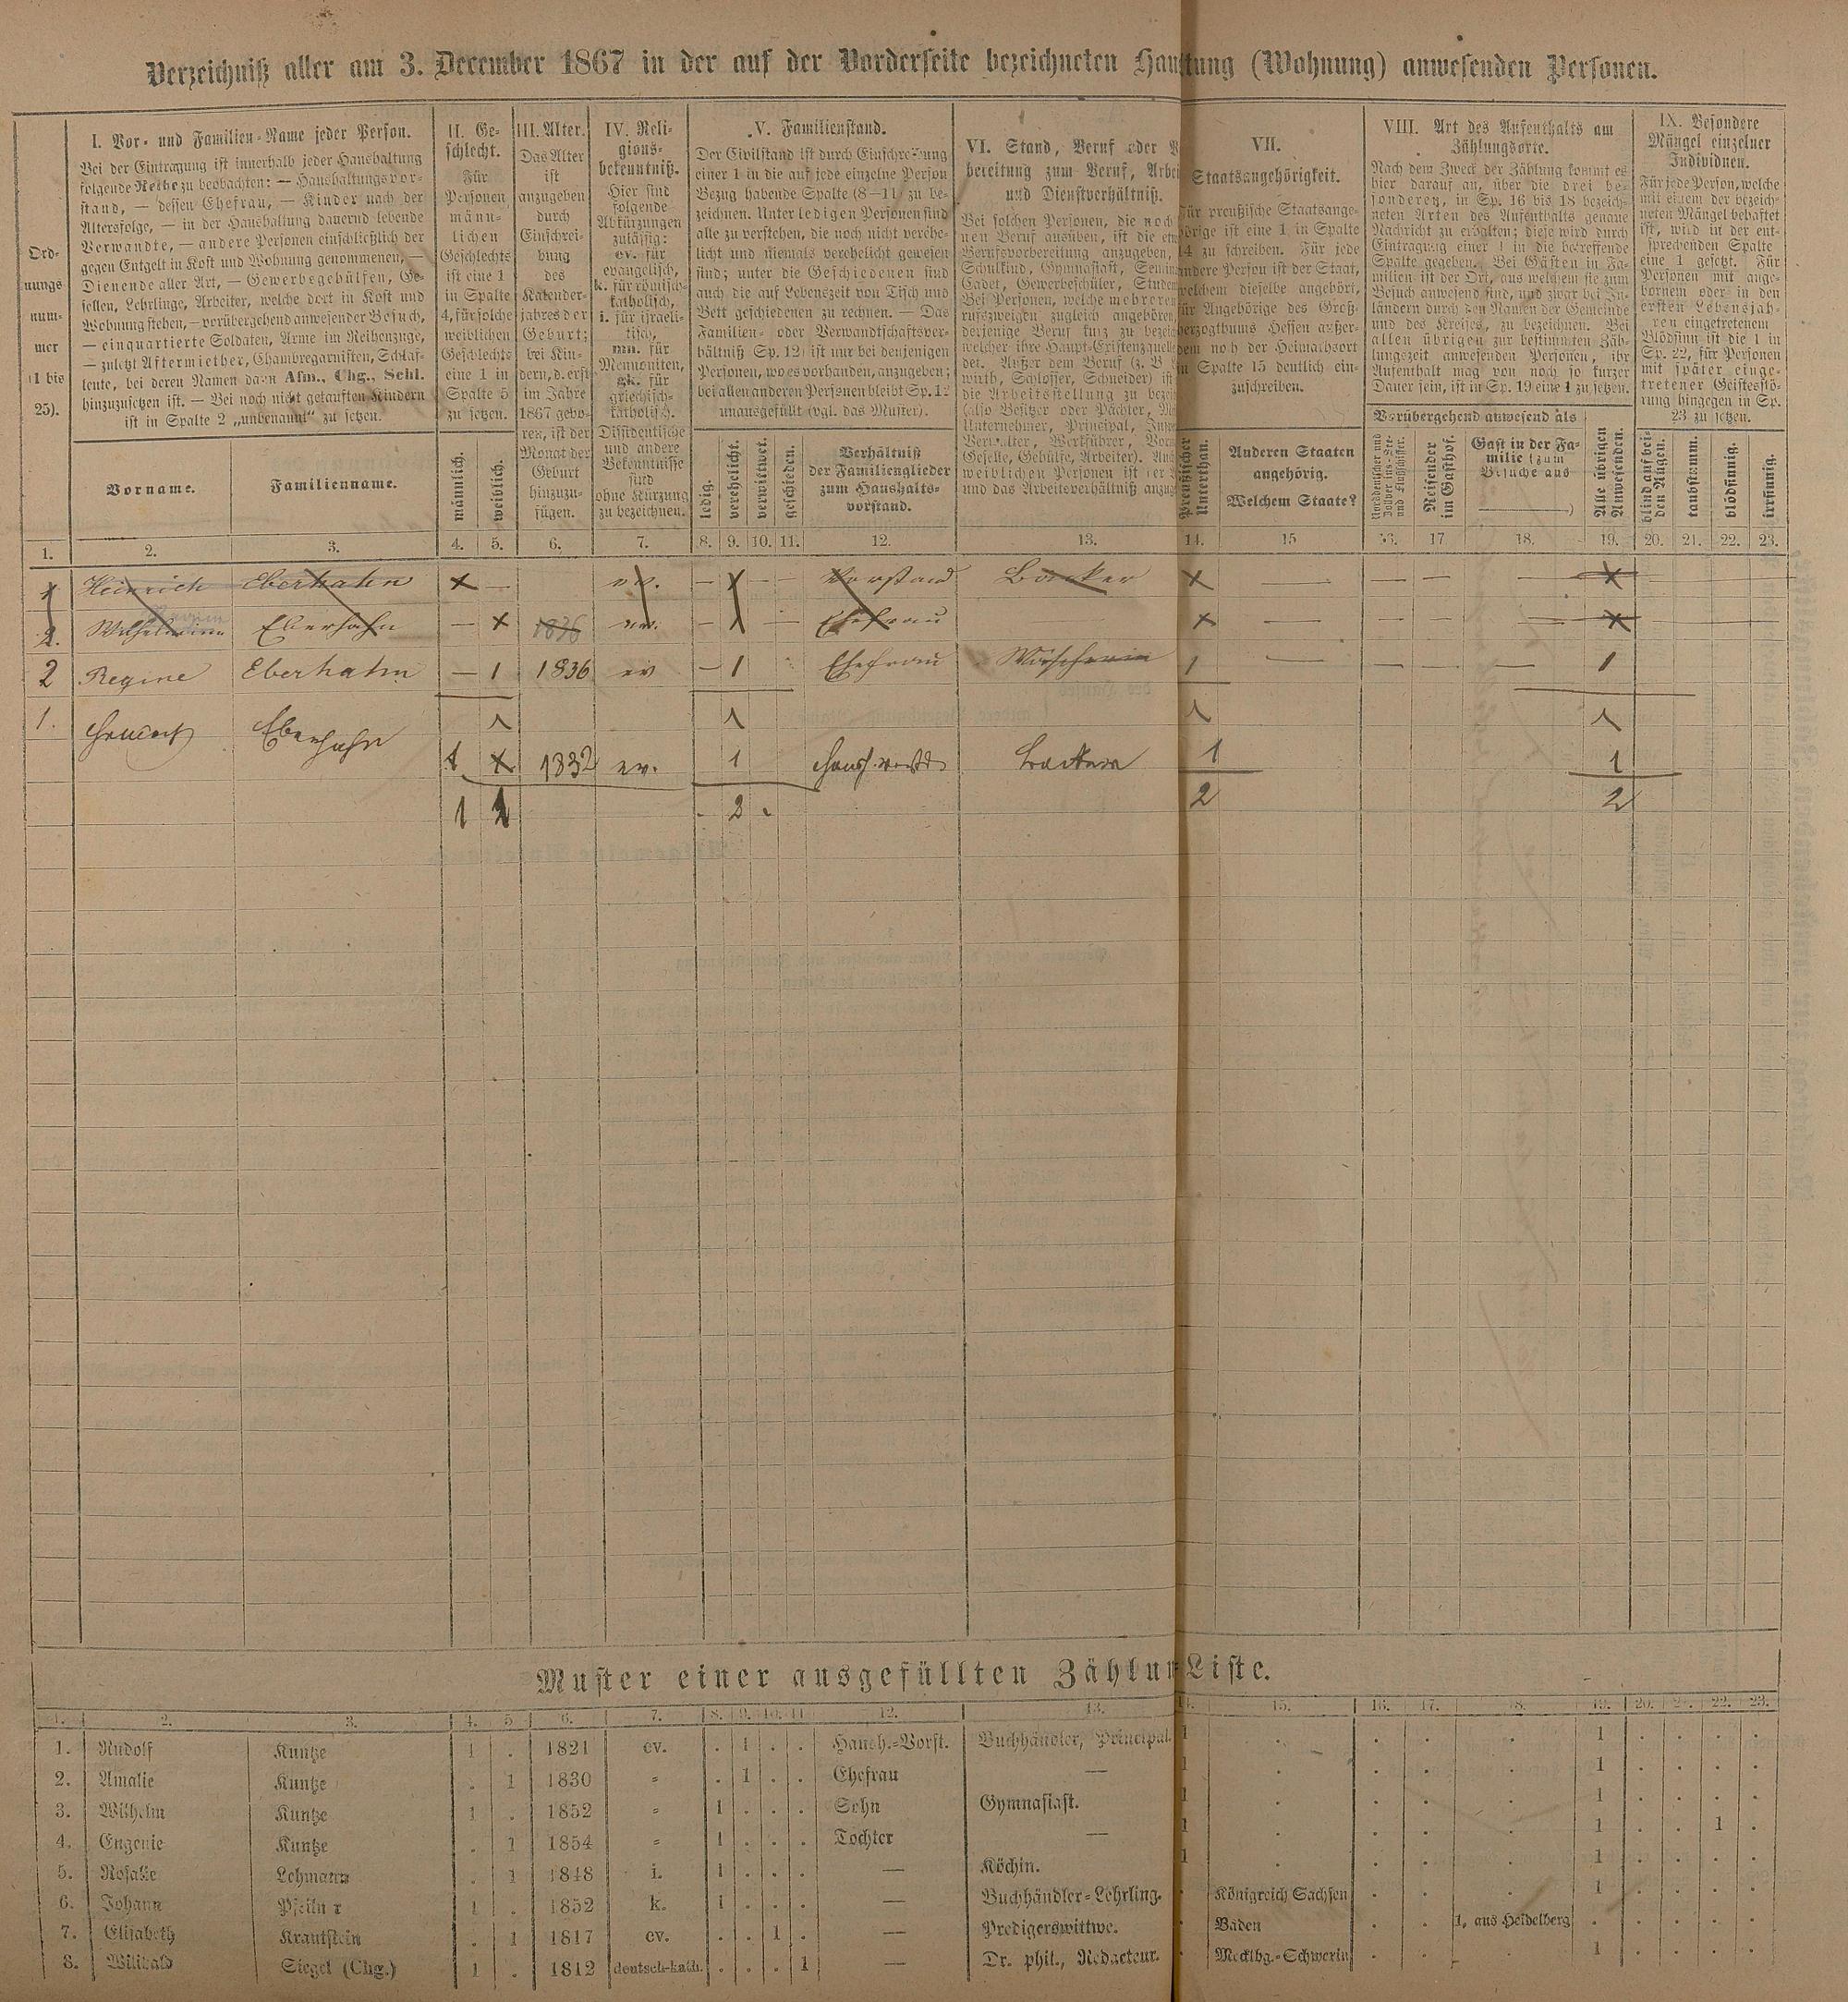 Verzeichniß aller am 3. December 1867 in der auf der Vorderseite bezeichneten Haus tung (Wohnung) anwesenden Personen.
Ord-
nungs-
num-
mer
(1 bis
25).
I. Vor- und Familien-Name jeder Person.
Bei der Eintragung ist innerhalb jeder Haushaltung
folgende Reihe zu beobachten: — Haushaltungsvor-
stand, — dessen Ehefrau, — Kinder nach der
Altersfolge, — in der Haushaltung dauernd lebende
Verwandte, — andere Personen einschließlich der
gegen Entgelt in Kost und Wohnung genommenen, —
Dienende aller Art, — Gewerbsgehülfen, Ge-
sellen, Lehrlinge, Arbeiter, welche dort in Kost und
Wohnung stehen, — vorübergehend anwesender Besuch,
— einquartierte Soldaten, Arme im Reihenzuge,
— zuletzt Aftermiether, Chambregarnisten, Schlaf-
leute, bei deren Namen dann Afm., Chg., Schl.
hinzuzusetzen ist. — Bei noch nicht getauften Kindern
ist in Spalte 2 „unbenannt“ zu setzen.
Vorname.
Familienname.
II. Ge-
schlecht.
Für
Personen
männ-
lichen
Geschlechts
ist eine 1
in Spalte
4, für solche
weiblichen
Geschlechts
eine 1 in
Spalte 5
zu setzen.
männlich.
weiblich.
III. Alter.
Das Alter
ist
anzugeben
durch
Einschrei-
bung
des
Kalender-
jahres der
Geburt;
bei Kin-
dern, d. erst
im Jahre
1867 gebo-
ren, ist der
Monat der
Geburt
hinzuzu-
fügen.
IV. Reli-
gions-
bekenntniß.
Hier sind
folgende
Abkürzungen
zulässig:
ev. für
evangelisch,
k. für römisch-
katholisch,
i. für israeli-
tisch,
mn. für
Mennoniten,
gk. für
griechisch-
katholisch.
Dissidentische
und andere
Bekenntnisse
sind
ohne Kürzung
zu bezeichnen.
V. Familienstand.
Der Civilstand ist durch Einschreibung
einer 1 in die auf jede einzelne Person
Bezug habende Spalte (8—11) zu be-
zeichnen. Unter ledigen Personen sind
alle zu verstehen, die noch nicht verehe-
licht und niemals verehelicht gewesen
sind; unter die Geschiedenen sind
auch die auf Lebenszeit von Tisch und
Bett geschiedenen zu rechnen. — Das
Familien- oder Verwandtschaftsver-
hältniß Sp. 12) ist nur bei denjenigen
Personen, wo es vorhanden, anzugeben;
bei allen anderen Personen bleibt Sp. 12
unausgefüllt (vgl. das Muster).
ledig.
verehelicht.
verwittwet.
geschieden.
Verhältniß
der Familienglieder
zum Haushalts-
vorstand.
VI. Stand, Beruf oder
bereitung zum Beruf, Arbei
und Dienstverhältniß.
Bei solchen Personen, die noch
nen Beruf ausüben, ist die
Berufsvorbereitung anzugeben,
Schulkind, Gymnasiast, Semin
Cadet, Gewerbeschüler, Studen
Bei Personen, welche mehreren
rufszweigen zugleich angehören,
derjenige Beruf kurz zu bezeich
welcher ihre Haupt-Existenzquelle
det. Außer dem Beruf (z. B.
wirth, Schlosser, Schneider) ist
die Arbeitsstellung zu bezei
(also Besitzer oder Pächter,
Unternehmer, Principal,
Verwalter, Werkführer,
Geselle, Gehülfe, Arbeiter).
weiblichen Personen ist der
und das Arbeitsverhältniß anzug
VII.
Staatsangehörigkeit.
Für preußische Staatsange-
hörige ist eine 1 in Spalte
14 zu schreiben. Für jede
andere Person ist der Staat,
welchem dieselbe angehört,
für Angehörige des Groß-
herzogthums Hessen außer-
dem noch der Heimathsort
in Spalte 15 deutlich ein-
zuschreiben.
Preußischer
Unterthan.
Anderen Staaten
angehörig.
Welchem Staate?
VIII. Art des Aufenthalts am
Zählungsorte.
Nach dem Zweck der Zählung kommt es
hier darauf an, über die drei be-
sonderen, in Sp. 16 bis 18 bezeich-
neten Arten des Aufenthalts genaue
Nachricht zu erhalten; diese wird durch
Eintragung einer 1 in die betreffende
Spalte gegeben. Bei Gästen in Fa-
milien ist der Ort, aus welchem sie zum
Besuch anwesend sind, und zwar bei In-
ländern durch den Namen der Gemeinde
und des Kreises, zu bezeichnen. Bei
allen übrigen zur bestimmten Zäh-
lungszeit anwesenden Personen, ihr
Aufenthalt mag von noch so kurzer
Dauer sein, ist in Sp. 19 eine 1 zu setzen.
Vorübergehend anwesend als
Norddeutscher und
Zollvereins-See-
und Flußschiffer.
Reisender
im Gasthof.
Gast in der Fa-
milie (zum
Besuche aus
)
Alle übrigen
Anwesenden.
IX. Besondere
Mängel einzelner
Individuen.
Für jede Person, welche
mit einem der bezeich-
neten Mängel behaftet
ist, wird in der ent-
sprechenden Spalte
eine 1 gesetzt. Für
Personen mit ange-
bornem oder in den
ersten Lebensjah-
ren eingetretenem
Blödsinn ist die 1 in
Sp. 22, für Personen
mit später einge-
tretener Geistesstö-
rung hingegen in Sp.
23 zu setzen.
blind auf bei-
den Augen.
taubstumm.
blödsinnig.
irrsinnig.
1. 2. 3. 4. 5. 6. 7. 8. 9. 10. 11. 12. 13. 14. 15 16. 17 18. 19. 20. 21. 22. 23.
1 Heinrich Eberhahn ev. Vorstand Bäcker
2. Wilhelmine Eberhahn — 1836 ev. Ehefrau
2 Regine Eberhahn — 1 1836 ev — 1 Ehefrau Wäscherin 1 — — — — 1
1. Eberhahn 1 1 1 1
1 1832 ev. 1 1 1
1 1 2 2 2
Muster einer ausgefüllten Zählun Liste.
1. 2. 3. 4. 5. 6. 7. 8. 9. 10. 11. 12. 13. 14. 15. 16. 17. 18. 19. 20. 21. 22. 23.
1. Rudolf Kuntze 1 . 1821 ev. . 1 . . Haush.-Vorst. Buchhändler, Principal. 1 . . . . 1 . . . .
2. Amalie Kuntze . 1 1830 " . 1 . . Ehefrau — 1 . . . . 1 . . . .
3. Wilhelm Kuntze 1 . 1852 " 1 . . . Sohn Gymnasiast. 1 . . . . 1 . . . .
4. Eugenie Kuntze . 1 1854 " 1 . . . Tochter — 1 . . . . 1 . . 1 .
5. Rosalie Lehmann . 1 1848 i. 1 . . . — Köchin. 1 . . . . 1 . . . .
6. Johann 1 . 1852 k. 1 . . . — Buchhändler-Lehrling. . Königreich Sachsen . . . 1 . . . .
7. Elisabeth Krautstein . 1 1817 ev. . . 1 . — Predigerswittwe. . Baden . . 1, aus Heidelberg . . . . .
8. Wilibald Siegel (Chg.) 1 . 1812 deutsch-kath. . . . 1 — Dr. phil., Redacteur. . Mecklbg.-Schwerin . . . 1 . . . .